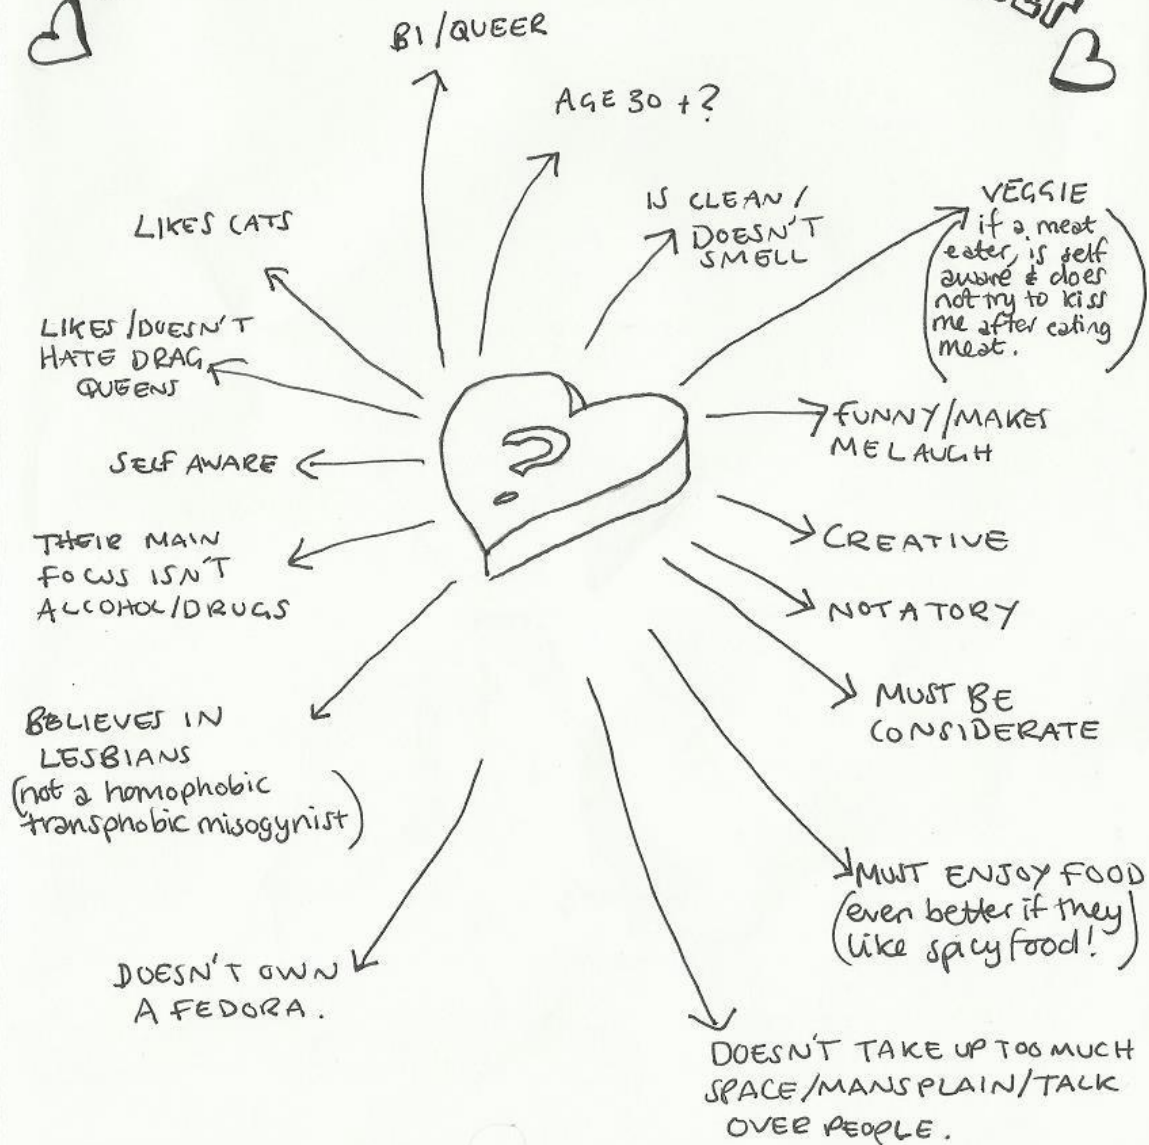 BI/QUEER
AGE 30 +?
IS CLEAN/
DOESN'T
SMELL
VEGGIE
(if a meat
eater, is self
aware & does
not try to kiss
me after eating
meat.)
LIKES CATS
LIKES/DOESN'T
HATE DRAG
QUEENS
?
FUNNY/MAKES
ME LAUGH
SELF AWARE
CREATIVE
THEIR MAIN
FOCUS ISN'T
ALCOHOL/DRUGS
NOT A TORY
MUST BE
CONSIDERATE
BELIEVES IN
LESBIANS
(not a homophobic
transphobic misogynist)
MUST ENJOY FOOD
(even better if they
like spicy food!)
DOESN'T OWN
A FEDORA.
DOESN'T TAKE UP TOO MUCH
SPACE/MANSPLAIN/TALK
OVER PEOPLE.